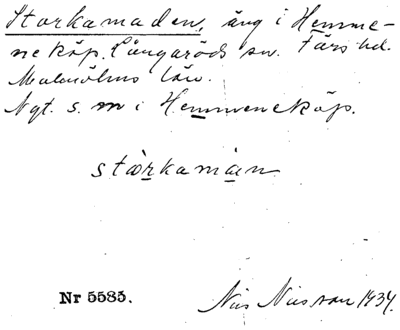 Storkamaden, äng i Hemme-
neköp. Långaröds sn. Färs hd.
Malmöhus län.
Ngt. s. m i Hemmeneköp.
stòrkamàen
Nr 5585.
Nils Nilsson 1934.